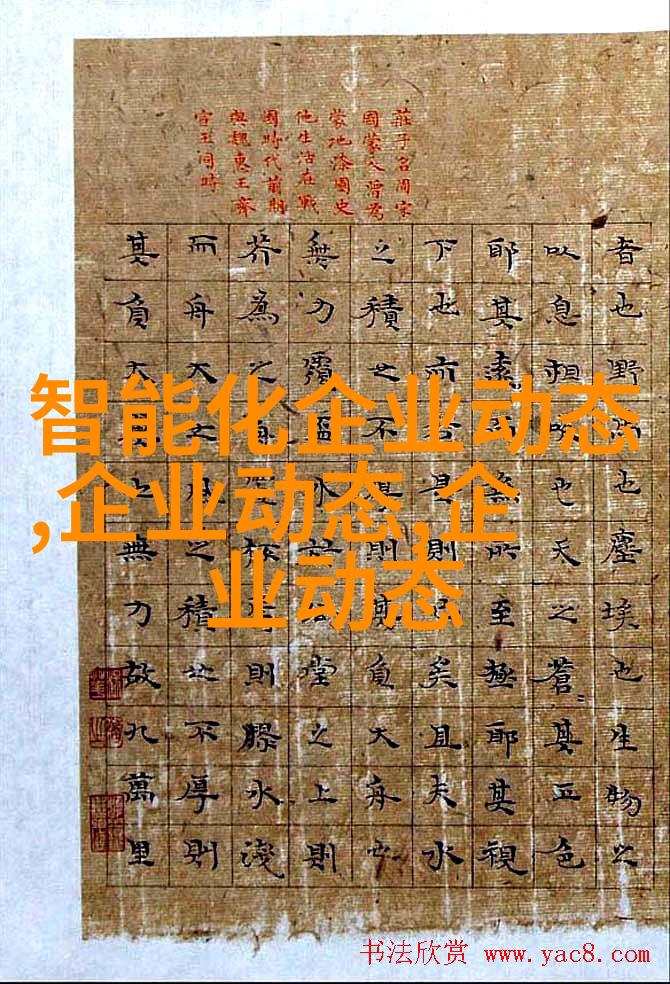 智能化企业动态
,企业动态,企
业动态
莊子名周宋
國蒙人曾爲
蒙地漆園史
他生活在戰
國時代前期
與魏惠王齊
宣王同時
者也野馬也塵埃也生物之
以息相吹也天之蒼〻其正色
耶其遠而無所至極耶其視
下也亦若是則已矣且夫水
之積也不厚則其負大舟也
無力覆盃水於坳堂之上則
芥爲之舟置杯焉則膠水淺
而舟大也風之積也不厚則
其負大翼也無力故九萬里
书法欣赏 www.yac8.com